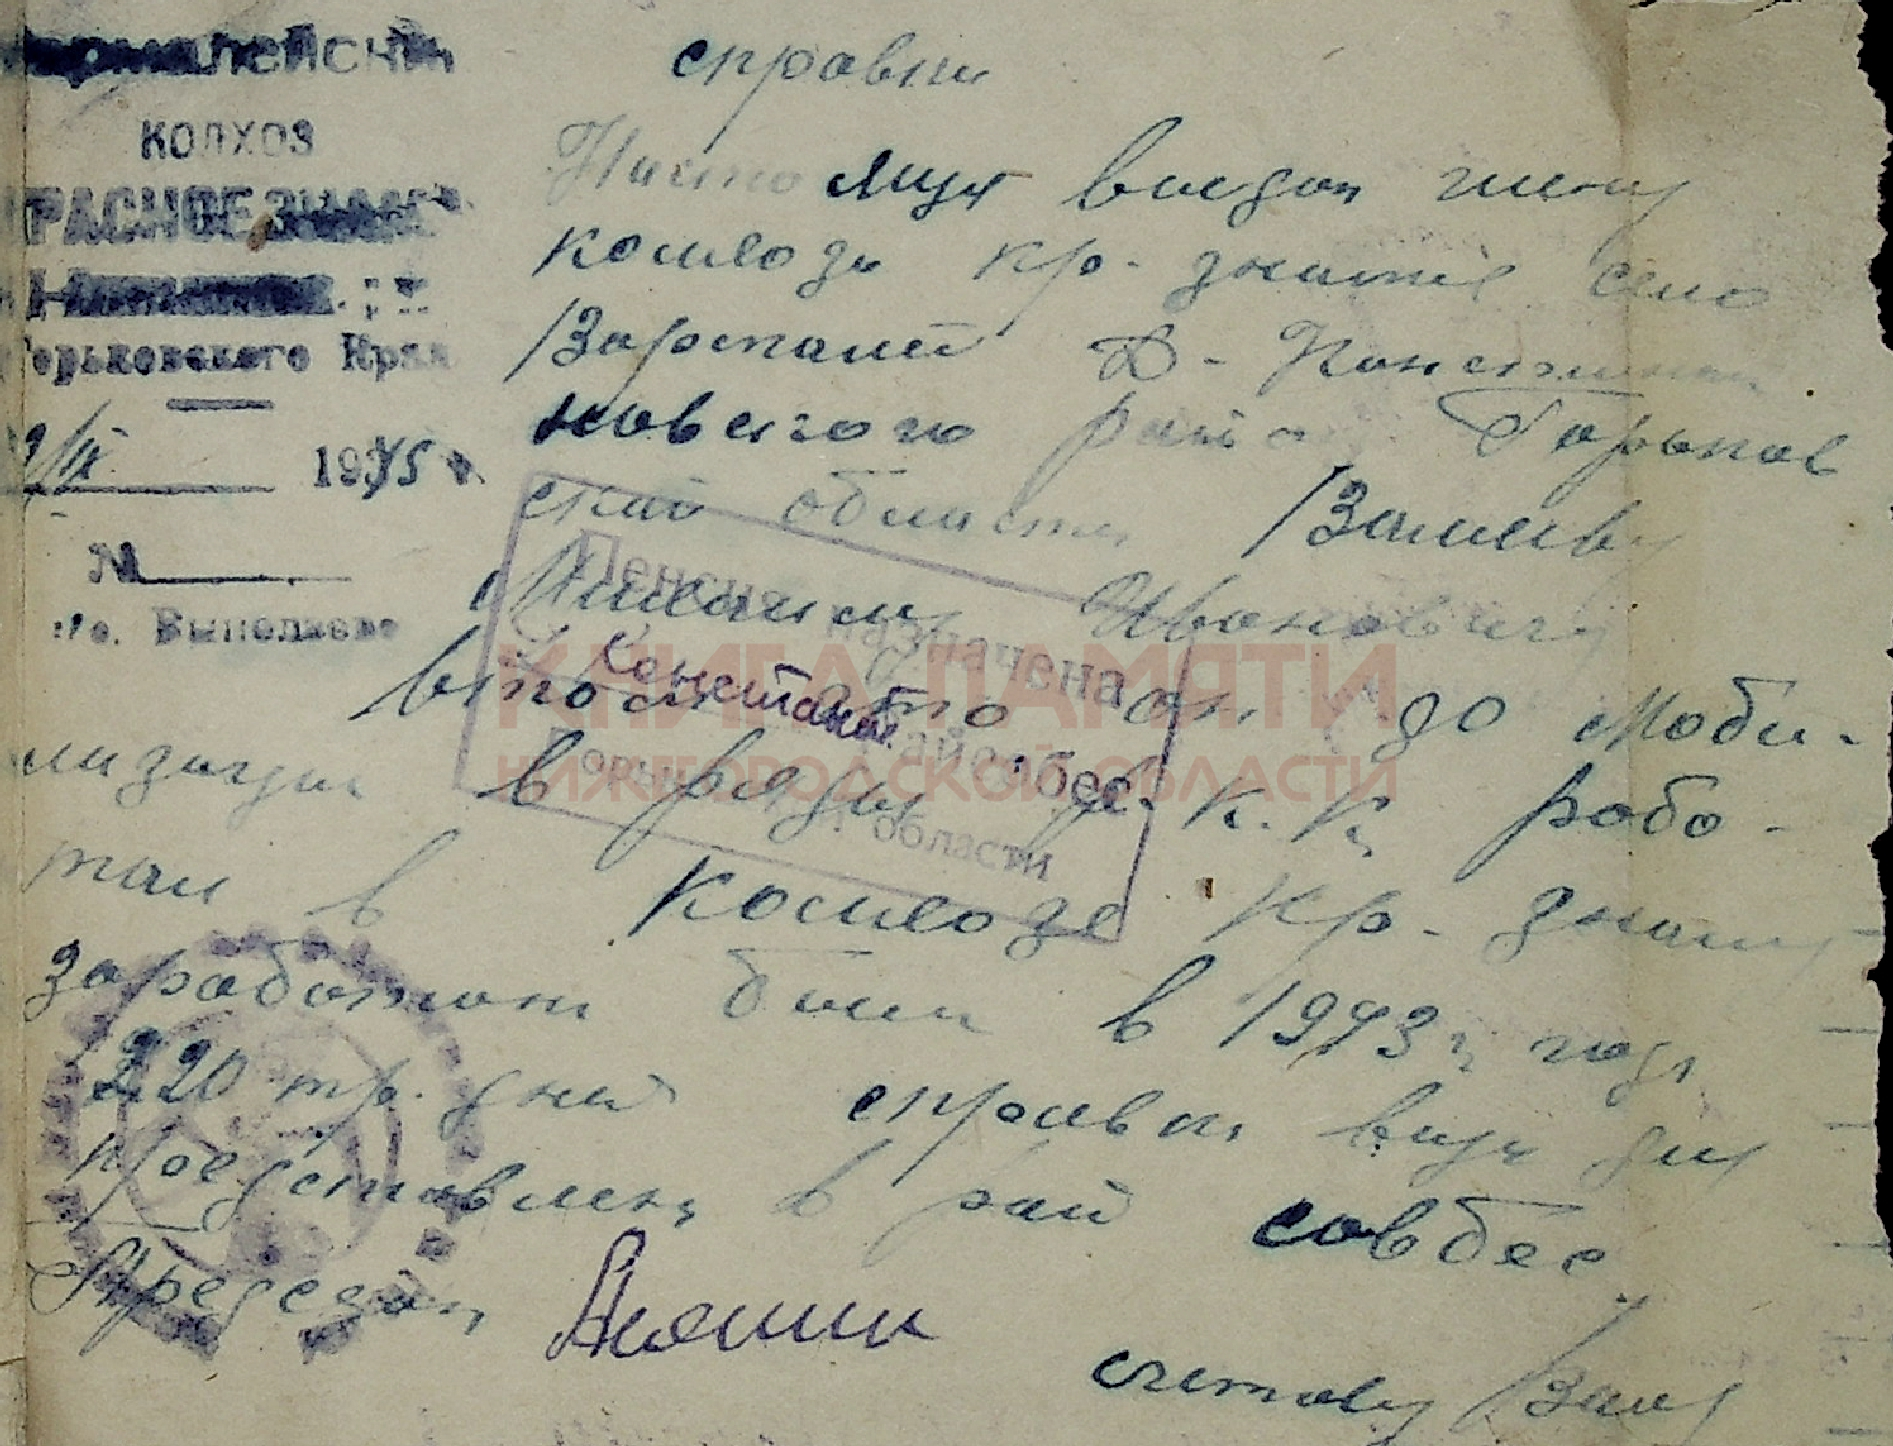 КОЛХОЗ
КРАСНОЕ ЗНАМЯ
Горьковского Края
1945
№
справка
Настоящая выдан члену
колхоза кр. знамя село
Д-Констинти
новского района Горьков
ской области
Михаилу Ивановичу
в том что он до моби-
лизации в ряды Р.К.К. робо-
тал в колхозе кр. знамя
заработано было в 1943 г году
220 тр. дней справка выда для
представлены в рай совбес
Председат
счетовод
Пенсия назначена
Констанин. райсобес.
области
КНИГА ПАМЯТИ
НИЖЕГОРОДСКОЙ ОБЛАСТИ